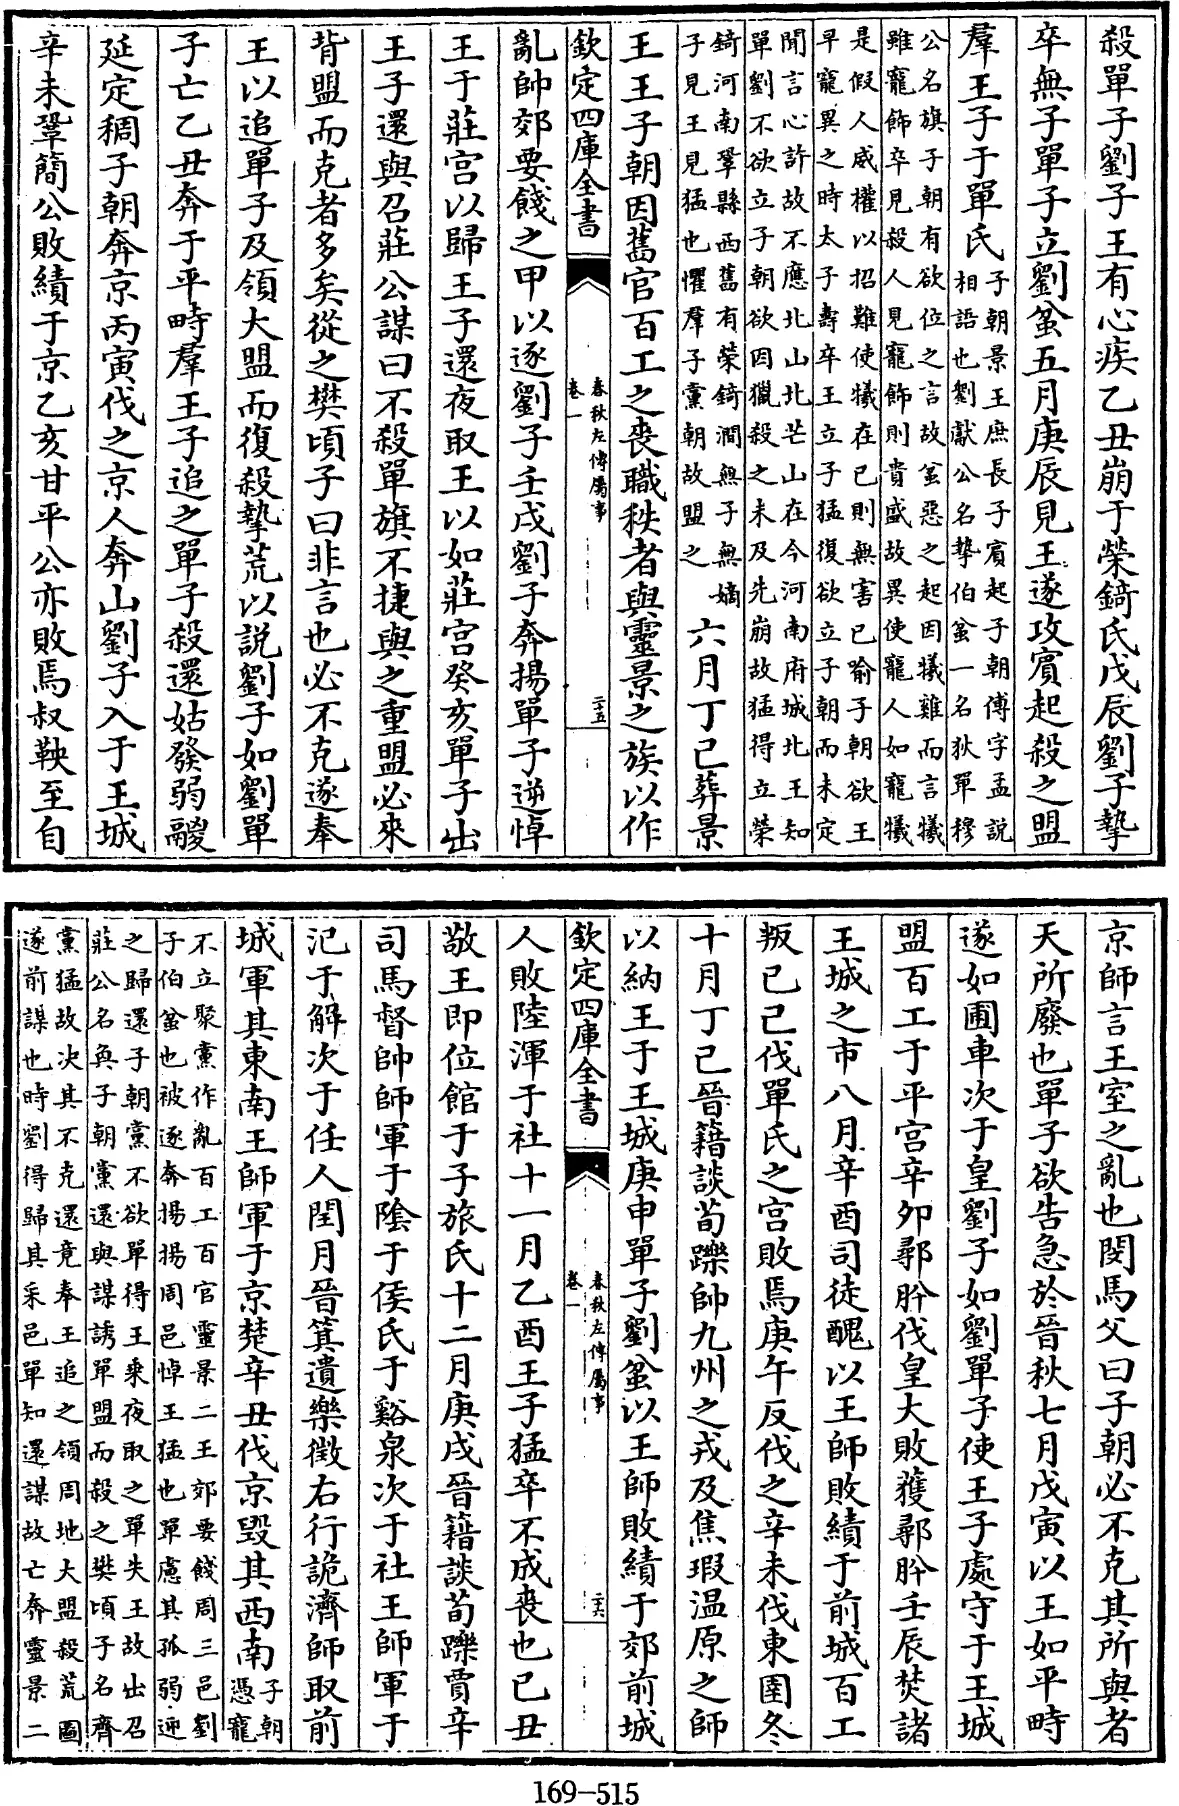 殺單子劉子王有心疾乙丑崩于榮錡氏戊辰劉子摯
卒無子單子立劉蚠五月庚辰見王遂攻賓起殺之盟
羣王子于單氏
子朝景王庶長子賓起子朝傅字孟說
相語也劉獻公名摯伯蚠一名狄單穆
公名旗子朝有欲位之言故蚠惡之起因犧雞而言犧
雖寵飾卒見殺人見寵飾則貴盛故異使寵人如寵犧
是假人威權以招難使犧在已則無害已喻子朝欲王
早寵異之時太子壽卒王立子猛復欲立子朝而未定
聞言心許故不應北山北芒山在今河南府城北王知
單劉不欲立子朝欲因獵殺之未及先崩故猛得立榮
錡河南鞏縣西舊有榮錡澗無子無嫡
子見王見猛也懼羣子黨朝故盟之
六月丁巳葬景
王王子朝因舊官百工之喪職秩者與靈景之族以作
欽定四庫全書
春秋左傳屬事
卷一
二十五
亂帥郊要餞之甲以逐劉子壬戌劉子奔揚單子逆悼
王于莊宮以歸王子還夜取王以如莊宮癸亥單子出
王子還與召莊公謀曰不殺單旗不捷與之重盟必來
背盟而克者多矣從之樊頃子曰非言也必不克遂奉
王以追單子及領大盟而復殺摯荒以說劉子如劉單
子亡乙丑奔于平畤羣王子追之單子殺還姑發弱鬷
延定稠子朝奔京丙寅伐之京人奔山劉子入于王城
辛未鞏簡公敗績于京乙亥甘平公亦敗焉叔鞅至自
京師言王室之亂也閔馬父曰子朝必不克其所與者
天所廢也單子欲告急於晉秋七月戊寅以王如平畤
遂如圃車次于皇劉子如劉單子使王子處守于王城
盟百工于平宮辛卯鄩肸伐皇大敗獲鄩肸壬辰焚諸
王城之市八月辛酉司徒醜以王師敗績于前城百工
叛己巳伐單氏之宮敗焉庚午反伐之辛未伐東圉冬
十月丁巳晉籍談荀躒帥九州之戎及焦瑕温原之師
以納王于王城庚申單子劉蚠以王師敗績于郊前城
欽定四庫全書
春秋左傳屬事
卷一
二十六
人敗陸渾于社十一月乙酉王子猛卒不成喪也己丑
敬王即位館于子旅氏十二月庚戌晉籍談荀躒賈辛
司馬督帥師軍于陰于侯氏于谿泉次于社王師軍于
氾于解次于任人閏月晉箕遺樂徵右行詭濟師取前
城軍其東南王師軍于京楚辛丑伐京毀其西南
子朝
憑寵
不立聚黨作亂百工百官靈景二王郊要餞周三邑劉
子伯蚠也被逐奔揚揚周邑悼王猛也單慮其孤弱迎
之歸還子朝黨不欲單得王乘夜取之單失王故出召
莊公名奐子朝黨還與謀誘單盟而殺之樊頃子名齊
黨猛故决其不克還竟奉王追之領周地大盟殺荒圖
遂前謀也時劉得歸其采邑單知還謀故亡奔靈景二
169—515